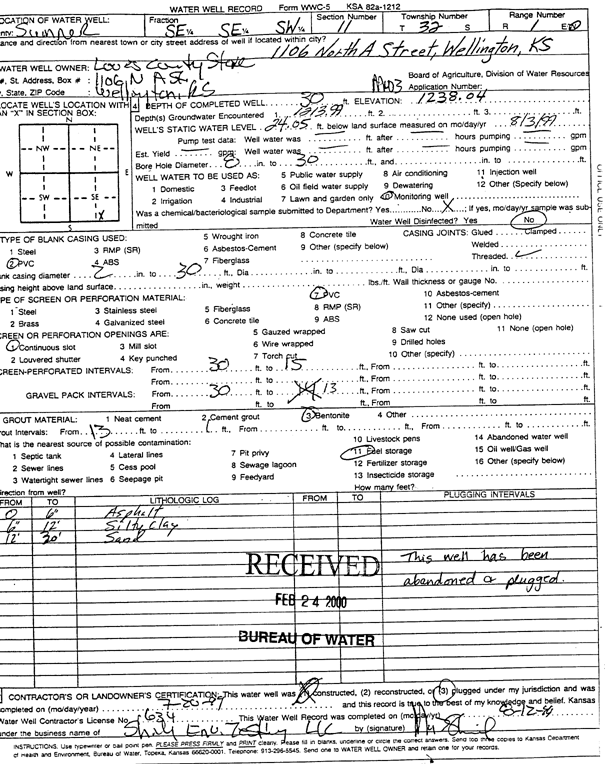 WATER WELL RECORD Form WWC-5 KSA 82a-1212
OCATION OF WATER WELL: Fraction Section Number Township Number Range Number
nty: Sumner SE¼ SE¼ SW¼ 11 T 32 S R 1 E
ance and direction from nearest town or city street address of well if located within city?
1106 North A Street, Wellington, KS
WATER WELL OWNER: Loves County Store
#, St. Address, Box # : 1106 N A St
Board of Agriculture, Division of Water Resources
, State, ZIP Code : Wellington, KS
Application Number:
OCATE WELL'S LOCATION WITH
AN "X" IN SECTION BOX:
4 DEPTH OF COMPLETED WELL 30 ft. ELEVATION: 1238.04
Depth(s) Groundwater Encountered 1 ft. 2. ft. 3. ft.
WELL'S STATIC WATER LEVEL 24.05 ft. below land surface measured on mo/day/yr 8/3/99
Pump test data: Well water was ft. after hours pumping gpm
Est. Yield gpm: Well water was ft. after hours pumping gpm
Bore Hole Diameter 8 in. to 30 ft., and in. to ft.
WELL WATER TO BE USED AS: 5 Public water supply 8 Air conditioning 11 Injection well
1 Domestic 3 Feedlot 6 Oil field water supply 9 Dewatering 12 Other (Specify below)
2 Irrigation 4 Industrial 7 Lawn and garden only 10 Monitoring well
Was a chemical/bacteriological sample submitted to Department? Yes No X ; If yes, mo/day/yr sample was sub-
mitted Water Well Disinfected? Yes No
N
NW NE
W E
SW SE
X
S
TYPE OF BLANK CASING USED: 5 Wrought iron 8 Concrete tile CASING JOINTS: Glued Clamped
1 Steel 3 RMP (SR) 6 Asbestos-Cement 9 Other (specify below) Welded
2 PVC 4 ABS 7 Fiberglass Threaded
nk casing diameter 2 in. to 30 ft., Dia in. to ft., Dia in. to ft.
sing height above land surface in., weight lbs./ft. Wall thickness or gauge No.
PE OF SCREEN OR PERFORATION MATERIAL: 7 PVC 10 Asbestos-cement
1 Steel 3 Stainless steel 5 Fiberglass 8 RMP (SR) 11 Other (specify)
2 Brass 4 Galvanized steel 6 Concrete tile 9 ABS 12 None used (open hole)
CREEN OR PERFORATION OPENINGS ARE: 5 Gauzed wrapped 8 Saw cut 11 None (open hole)
1 Continuous slot 3 Mill slot 6 Wire wrapped 9 Drilled holes
2 Louvered shutter 4 Key punched 7 Torch cut 10 Other (specify)
CREEN-PERFORATED INTERVALS: From 30 ft. to 15 ft., From ft. to ft.
From ft. to ft., From ft. to ft.
GRAVEL PACK INTERVALS: From 30 ft. to 13 ft., From ft. to ft.
From ft. to ft., From ft. to ft.
GROUT MATERIAL: 1 Neat cement 2 Cement grout 3 Bentonite 4 Other
rout Intervals: From 13 ft. to ft., From ft. to ft., From ft. to ft.
hat is the nearest source of possible contamination: 10 Livestock pens 14 Abandoned water well
1 Septic tank 4 Lateral lines 7 Pit privy 11 Fuel storage 15 Oil well/Gas well
2 Sewer lines 5 Cess pool 8 Sewage lagoon 12 Fertilizer storage 16 Other (specify below)
3 Watertight sewer lines 6 Seepage pit 9 Feedyard 13 Insecticide storage
irection from well? How many feet?
FROM TO LITHOLOGIC LOG FROM TO PLUGGING INTERVALS
0 6" Asphalt
6" 12' Silty Clay
12' 30' Sand
This well has been
abandoned & plugged.
RECEIVED
FEB 24 2000
BUREAU OF WATER
CONTRACTOR'S OR LANDOWNER'S CERTIFICATION: This water well was (1) constructed, (2) reconstructed, or (3) plugged under my jurisdiction and was
ompleted on (mo/day/year) 7-20-99 and this record is true to the best of my knowledge and belief. Kansas
Water Well Contractor's License No. 634 This Water Well Record was completed on (mo/day/yr) 8-12-99
under the business name of by (signature)
INSTRUCTIONS: Use typewriter or ball point pen. PLEASE PRESS FIRMLY and PRINT clearly. Please fill in blanks, underline or circle the correct answers. Send top three copies to Kansas Department
of Health and Environment, Bureau of Water, Topeka, Kansas 66620-0001. Telephone: 913-296-5545. Send one to WATER WELL OWNER and retain one for your records.